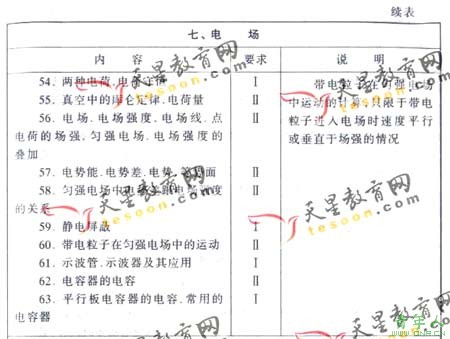 续表
七、电 场
内 容 要求 说 明
54. 两种电荷.电荷守恒 Ⅰ
55. 真空中的库仑定律.电荷量 Ⅱ
56. 电场.电场强度.电场线.点 Ⅱ
电荷的场强.匀强电场.电场强度的
叠加
57. 电势能.电势差.电势.等势面 Ⅱ
58. 匀强电场中电势差跟电场强度 Ⅱ
的关系
59. 静电屏蔽 Ⅰ
60. 带电粒子在匀强电场中的运动 Ⅱ
61. 示波管.示波器及其应用 Ⅰ
62. 电容器的电容 Ⅱ
63. 平行板电容器的电容.常用的 Ⅰ
电容器
带电粒子在匀强电场
中运动的计算,只限于带电
粒子进入电场时速度平行
或垂直于场强的情况
天星教育网
tesoon.com
天星教育网
tesoon.com
天星教育网
tesoon.com
天星教育网
tesoon.com
青年人